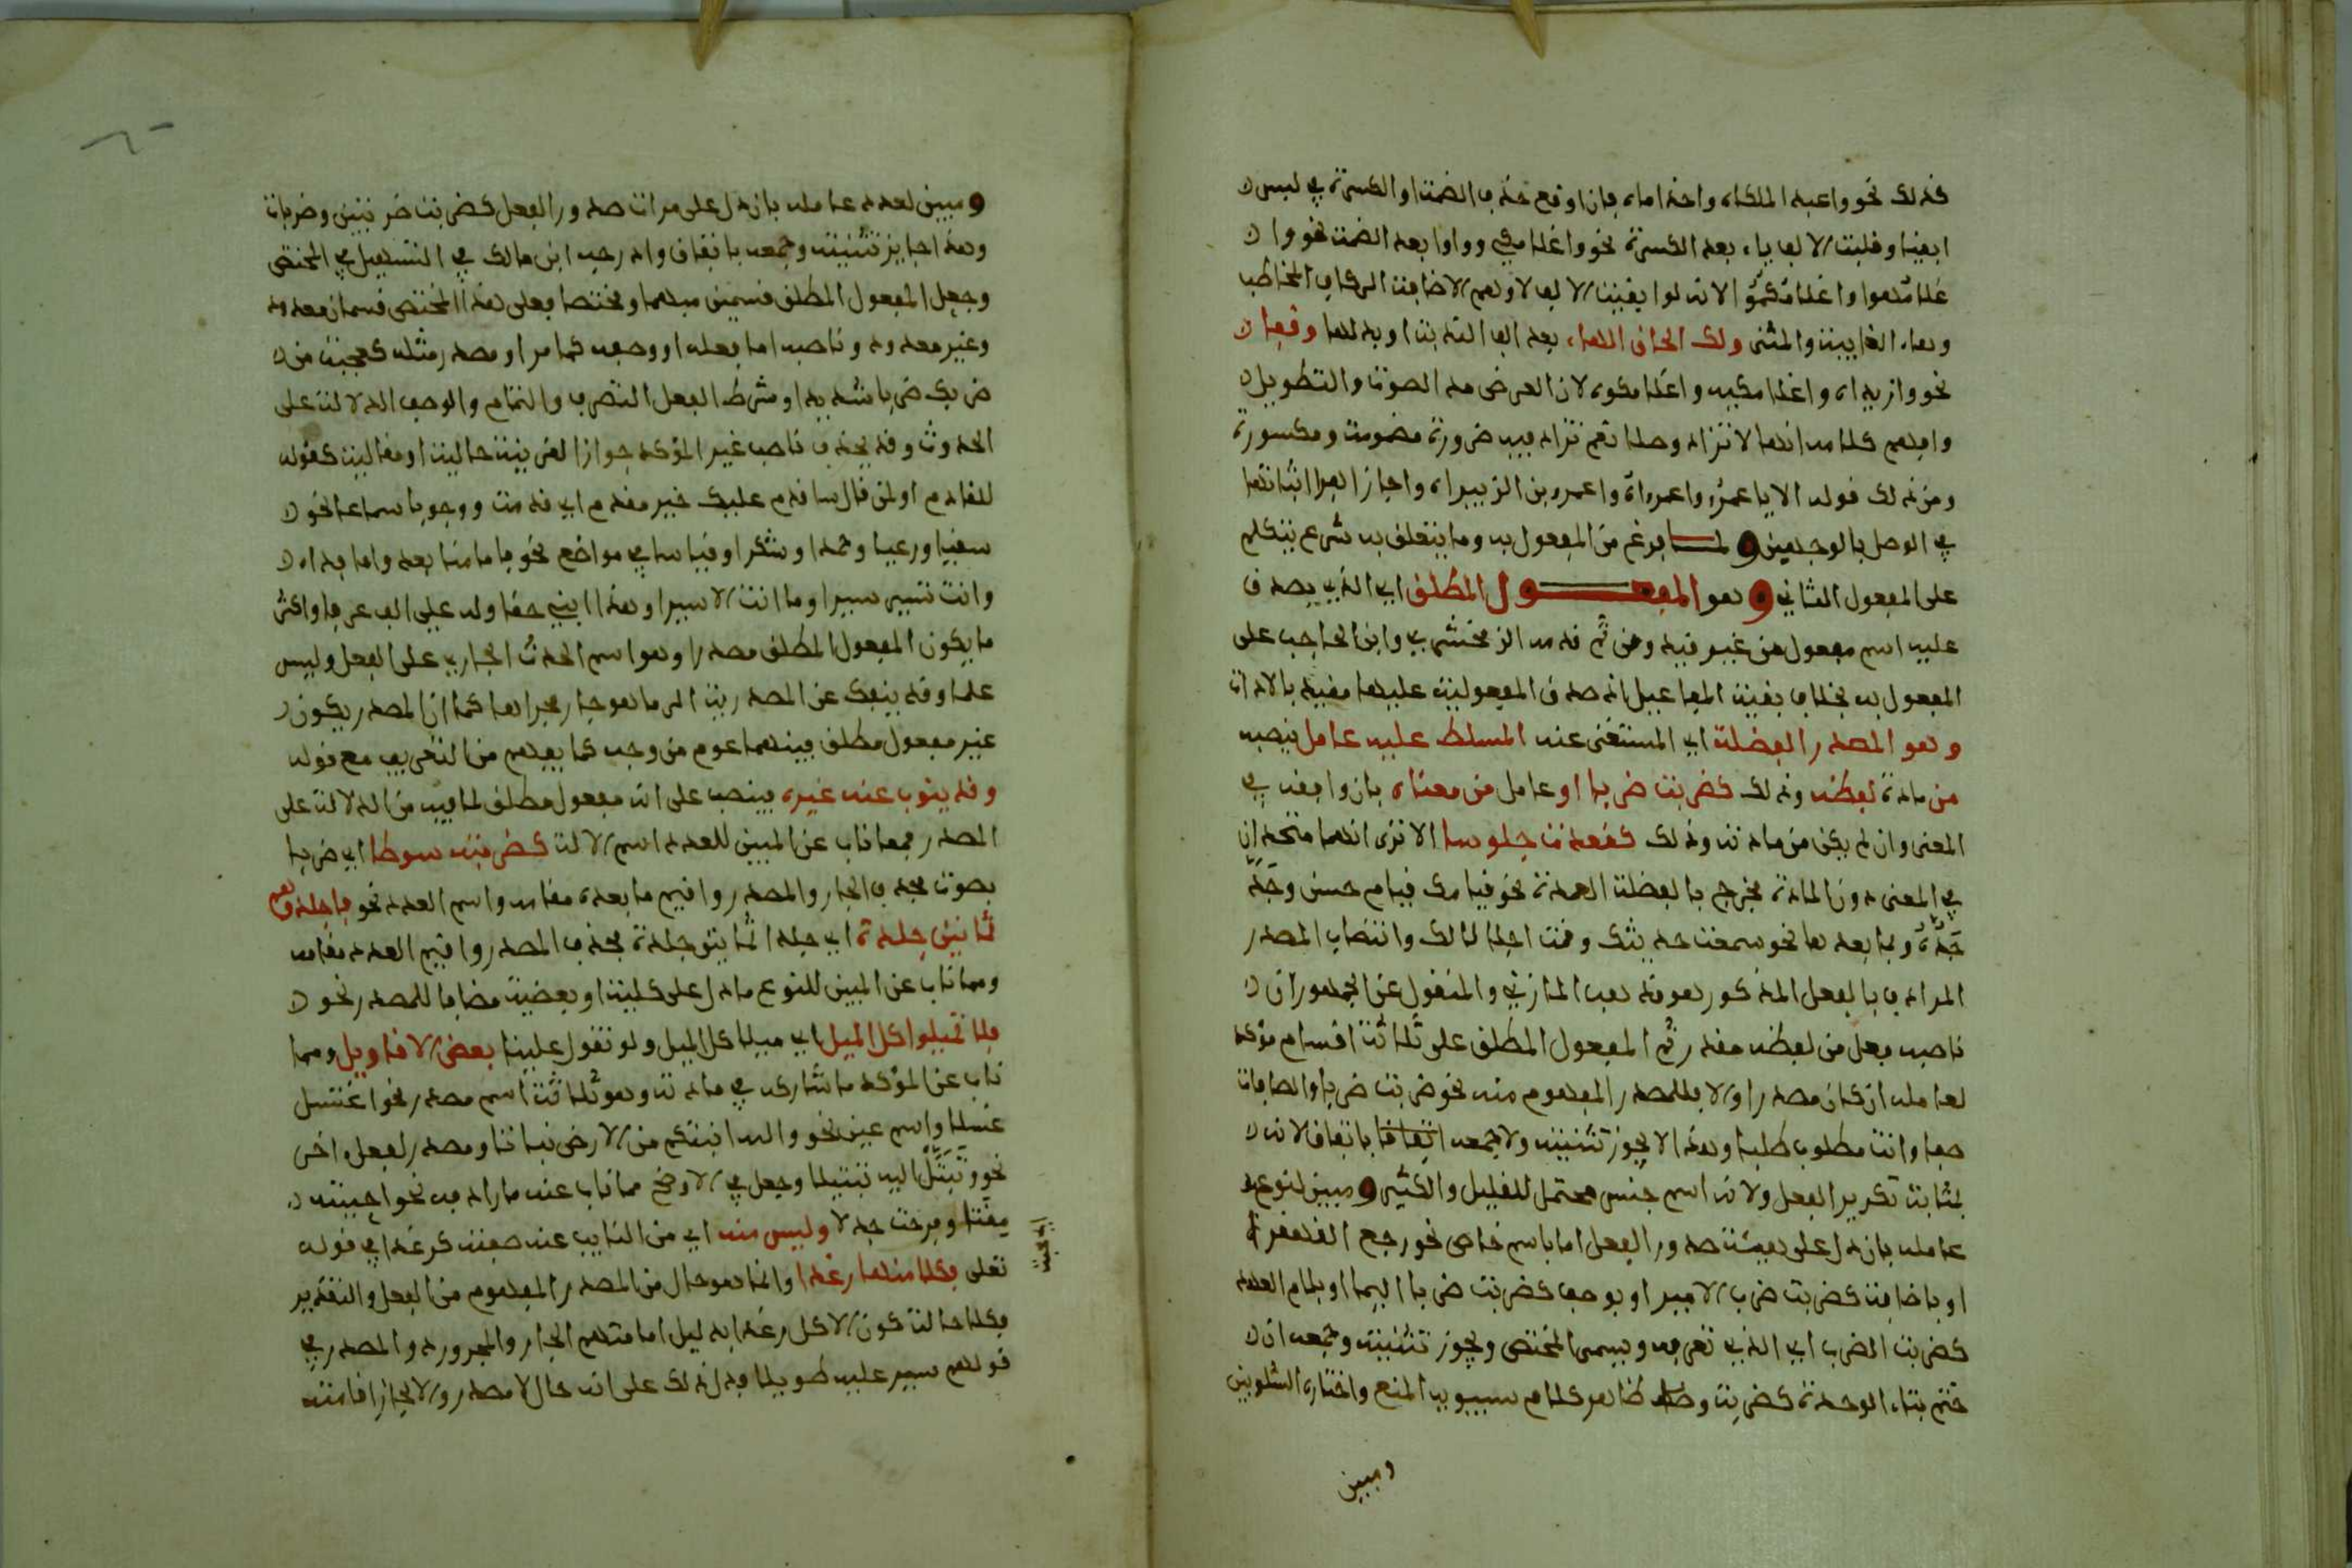 كذلك نحو واعبد الملكاه واحذاماه فان اوقع حذف الضمة او الكسرة في لبس
ابقيا وقلبت الالف ياء بعد الكسرة نحو واغلامكي وواوا بعد الضمة نحو وا
غلامهوا واغلامكمو الانه لو ابقيت الالف لاوهم الاضافة الى كاف المخاطب
وهاء الغايبة والمثنى ولك الحاق الهاء بعد الف الندبة او بدلها وقفا
نحو وازيداه واغلامكيه واغلامكوه لان الغرض مد الصوت والتطويل
وافهم كلامه انها لا تزاد وصلا نعم تزاد فيه ضرورة مضمومة ومكسورة
ومن ذلك قوله الا يا عمرو واعمراه واعمرو بن الزبيراه واجاز الفرا اثباتها
في الوصل بالوجهين ولما فرغ من المفعول به وما يتعلق به شرع يتكلم
على المفعول الثاني وهو المفعول المطلق اي الذي يصدق
عليه اسم مفعول من غير قيد ومن ثم قدمه الزمخشري وابن الحاجب على
المفعول به بخلاف بقية المفاعيل اذ صدق المفعولية عليها مقيد بالادات
وهو المصدر الفضلة اي المستغنى عنه المسلط عليه عامل ينصبه
من مادة لفظه وذلك كضربت ضربا او عامل من معناه بان وافقه في
المعنى وان لم يكن من مادته وذلك كقعدت جلوسا الا ترى انهما متحدان
في المعنى دون المادة فخرج بالفضلة العمدة نحو قيامك قيام حسن وجد
جده وبما بعدها نحو سمعت حديثك وقمت اجلالا لك وانتصاب المصدر
المرادف بالفعل المذكور هو مذهب المازني والمنقول عن الجمهور ان
ناصبه فعل من لفظه مقدر ثم المفعول المطلق على ثلاثة اقسام مؤكد
لعامله ان كان مصدرا والا فللمصدر المفهوم منه نحو ضربت ضربا والصافات
صفا وانت مطلوب طلبا وهذا لا يجوز تثنيته ولا جمعه اتفاقا باتفاق لانه
بمثابة تكرير الفعل ولانه اسم جنس محتمل للقليل والكثير ومبين لنوع
عامله بان دل على هيئة صدور الفعل اما باسم خاص نحو رجع القهقرى
او باضافة كضربت ضرب الامير او بوصف كضربت ضربا اليما او بلام العهد
كضربت الضرب اي الذي تعرفه ويسمى المختص ويجوز تثنيته وجمعه ان
ختم بتاء الوحدة كضربت وظاهر كلام سيبويه المنع واختاره الشلوبين
ومبين
ومبين لعدد عامله بان دل على مرات صدور الفعل كضربت ضربتين وضربات
وهذا جايز تثنيته وجمعه باتفاق وادرجه ابن مالك في التسهيل في المختص
وجعل المفعول المطلق قسمين مبهما ومختصا فعلى هذا المختص قسمان معدود
وغير معدود وناصبه اما فعله او وصفه كما مر او مصدر مثله كعجبت من
ضربك ضربا شديدا وشرط الفعل التصرف والتمام والوصف الدلالة على
الحدوث وقد يحذف ناصب غير المؤكد جوازا لقرينة حالية او مقالية كقوله
للقادم او لمن قال ساقدم عليك خير مقدم اي قدمت ووجوبا سماعا نحو
سقيا ورعيا وحمدا وشكرا وقياسا في مواضع نحو فاما منا بعد واما فداء
وانت تسير سيرا وما انت الا سيرا وهذا ابني حقا وله علي الف عرفا واكثر
ما يكون المفعول المطلق مصدرا وهو اسم الحدث الجاري على الفعل وليس
علما وقد ينفك عن المصدرية الى ما هو جار مجراها كما ان المصدر يكون
غير مفعول مطلق فبينهما عموم من وجه كما يفهم من التعريف مع قوله
وقد ينوب عنه غيره فينصب على انه مفعول مطلق لما فيه من الدلالة على
المصدر فمما ناب عن المبين للعدد اسم الالة كضربته سوطا اي ضربا
بصوت فحذف الجار والمصدر واقيم ما بعده مقامه واسم العدد نحو فاجلدوهم
ثمانين جلدة اي جلدا ثمانين جلدة فحذف المصدر واقيم العدد مقامه
ومما ناب عن المبين للنوع ما دل على كلية او بعضية مضافا للمصدر نحو
فلا تميلوا كل الميل اي ميلا كل الميل ولو تقول علينا بعض الاقاويل ومما
ناب عن المؤكد ما شاركه في مادته وهو ثلاثة اسم مصدر نحو اغتسل
غسلا واسم عين نحو والله انبتكم من الارض نباتا ومصدر لفعل اخر
نحو وتبتل اليه تبتيلا وجعل في الاوضح مما ناب عنه مارادفه نحو احببته
مقتا وفرحت جذلا وليس منه اي من النايب عنه صفته كرغدا في قوله
تعلى فكلا منها رغدا وانما هو حال من المصدر المفهوم من الفعل والتقدير
فكلا حالة كون الاكل رغدا بدليل اقامتهم الجار والمجرور دون المصدر في
قولهم سير عليه طويلا فدل ذلك على انه حال لا مصدر والا لجاز اقامته